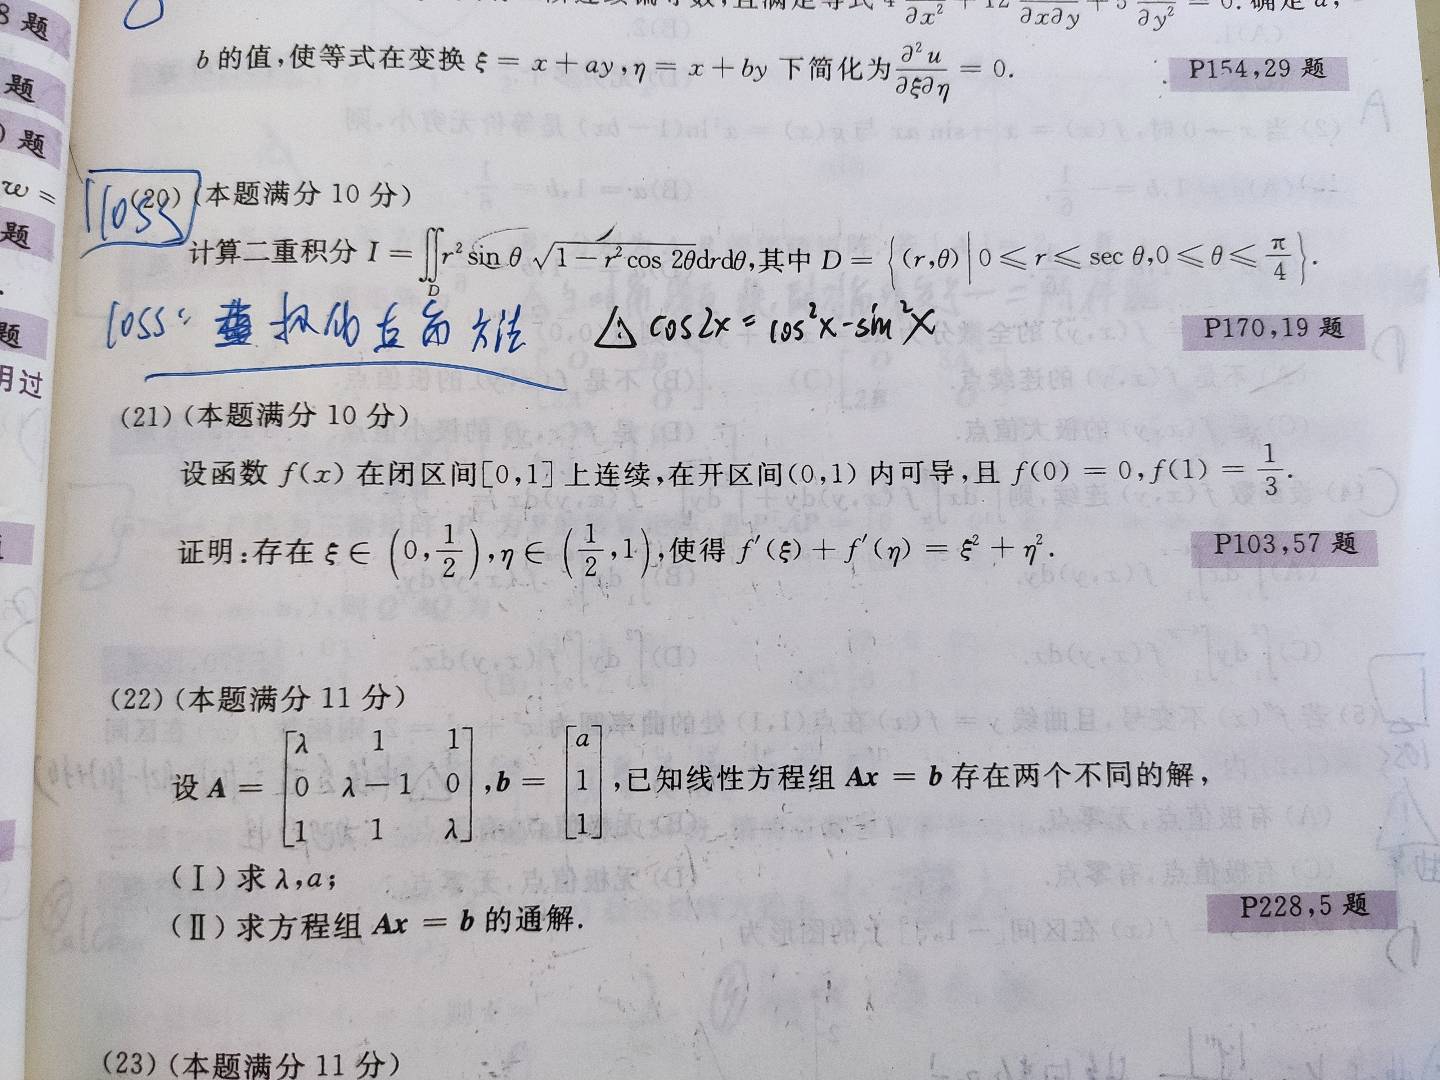 8 题
题
) 题
w =
题
题
明过
∂x² ∂x∂y + 5 ∂y² = 0. 确定 a,
b 的值,使等式在变换 ξ = x + ay, η = x + by 下简化为 ∂²u/∂ξ∂η = 0.
P154,29 题
(20) (本题满分 10 分)
计算二重积分 I = ∬_D r² sin θ √(1 − r² cos 2θ) drdθ,其中 D = {(r,θ) | 0 ⩽ r ⩽ sec θ, 0 ⩽ θ ⩽ π/4}.
loss: 方法 △! cos2x = cos²x - sin²x
P170,19 题
(21) (本题满分 10 分)
设函数 f(x) 在闭区间[0,1]上连续,在开区间(0,1) 内可导,且 f(0) = 0, f(1) = 1/3.
证明:存在 ξ ∈ (0, 1/2), η ∈ (1/2, 1),使得 f′(ξ) + f′(η) = ξ² + η².
P103,57 题
(22) (本题满分 11 分)
设 A = [λ 1 1; 0 λ−1 0; 1 1 λ], b = [a; 1; 1],已知线性方程组 Ax = b 存在两个不同的解,
(Ⅰ) 求 λ,a;
(Ⅱ) 求方程组 Ax = b 的通解.
P228,5 题
(23) (本题满分 11 分)